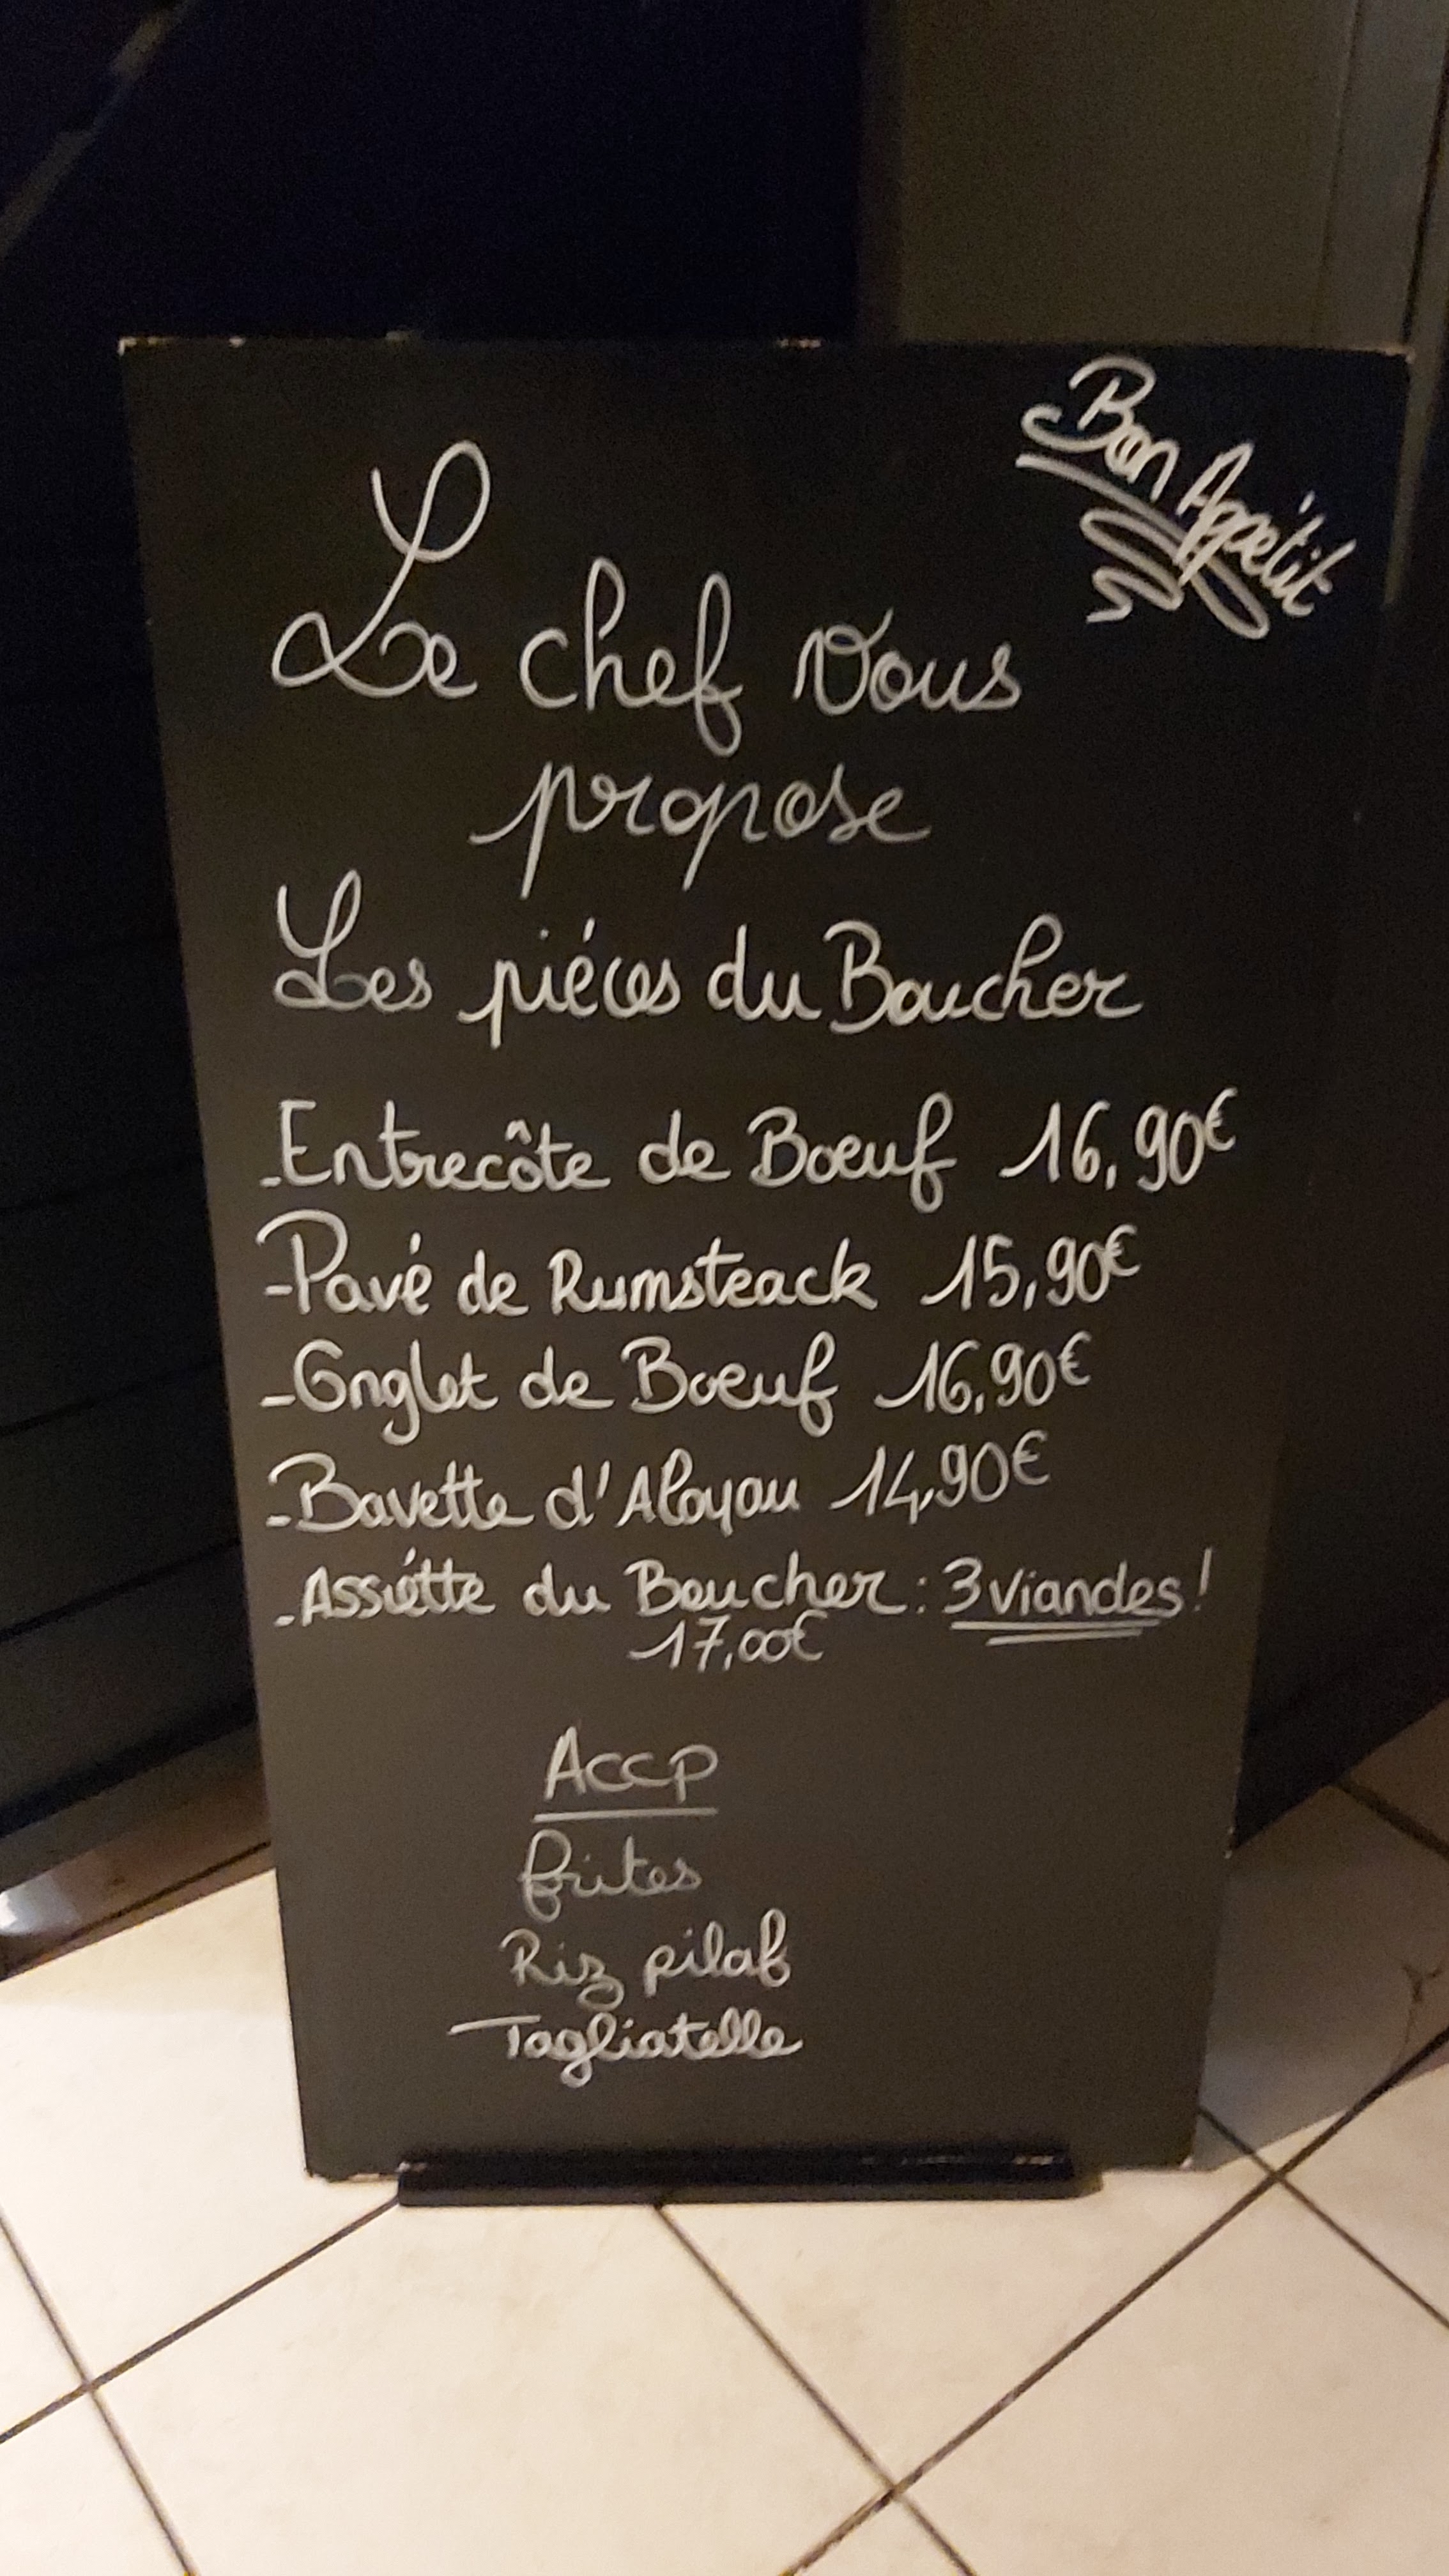 Bon Appétit
Le chef vous
propose
Les piéces du Boucher
-Entrecôte de Boeuf 16,90€
-Pavé de Rumsteack 15,90€
-Onglet de Boeuf 16,90€
-Bavette d'Aloyau 14,90€
-Assiétte du Boucher: 3 viandes!
17,00€
ACCP
frites
Riz pilaf
Tagliatelle